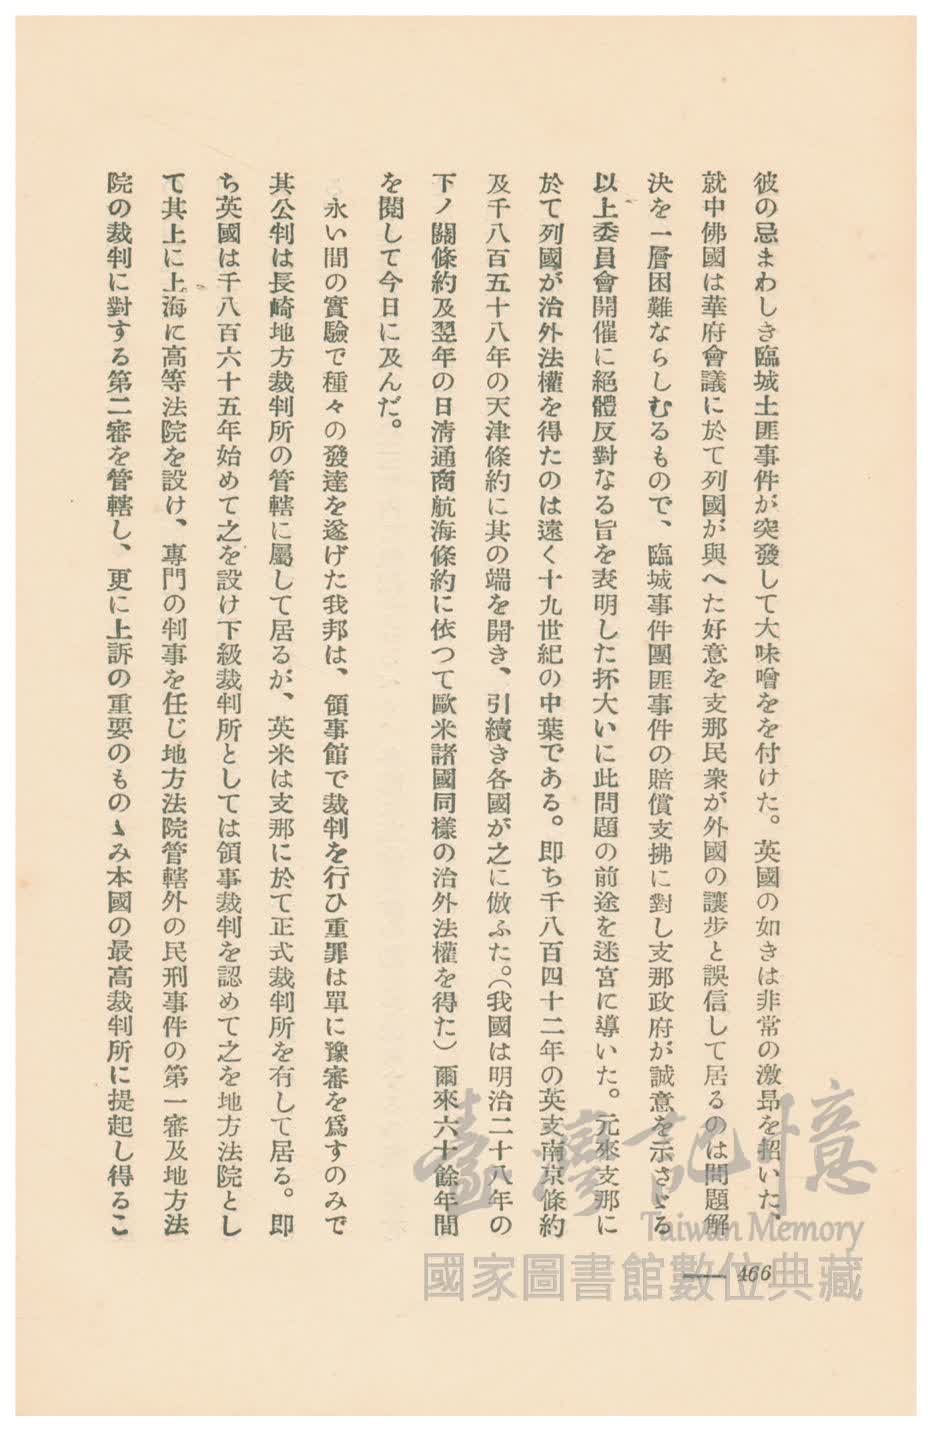 彼の忌まわしき臨城土匪事件が突發して大味噌をを付けた。英國の如きは非常の激昻を招いた、
就中佛國は華府會議に於て列國が與へた好意を支那民衆が外國の讓步と誤信して居るのは問題解
決を一層困難ならしむるもので、臨城事件團匪事件の賠償支拂に對し支那政府が誠意を示さゞる
以上委員會開催に絕體反對なる旨を表明した抔大いに此問題の前途を迷宮に導いた。元來支那に
於て列國が治外法權を得たのは遠く十九世紀の中葉である。即ち千八百四十二年の英支南京條約
及千八百五十八年の天津條約に其の端を開き、引續き各國が之に倣ふた。(我國は明治二十八年の
下ノ關條約及翌年の日淸通商航海條約に依つて歐米諸國同樣の治外法權を得た)爾來六十餘年間
を閱して今日に及んだ。
永い間の實驗で種々の發達を遂げた我邦は、領事館で裁判を行ひ重罪は單に豫審を爲すのみで
其公判は長崎地方裁判所の管轄に屬して居るが、英米は支那に於て正式裁判所を有して居る。即
ち英國は千八百六十五年始めて之を設け下級裁判所としては領事裁判を認めて之を地方法院とし
て其上に上海に高等法院を設け、專門の判事を任じ地方法院管轄外の民刑事件の第一審及地方法
院の裁判に對する第二審を管轄し、更に上訴の重要のものゝみ本國の最高裁判所に提起し得るこ
466
臺灣記憶
Taiwan Memory
國家圖書館數位典藏